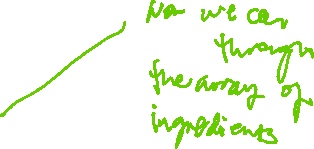 Now we can
through
the array of
ingredients